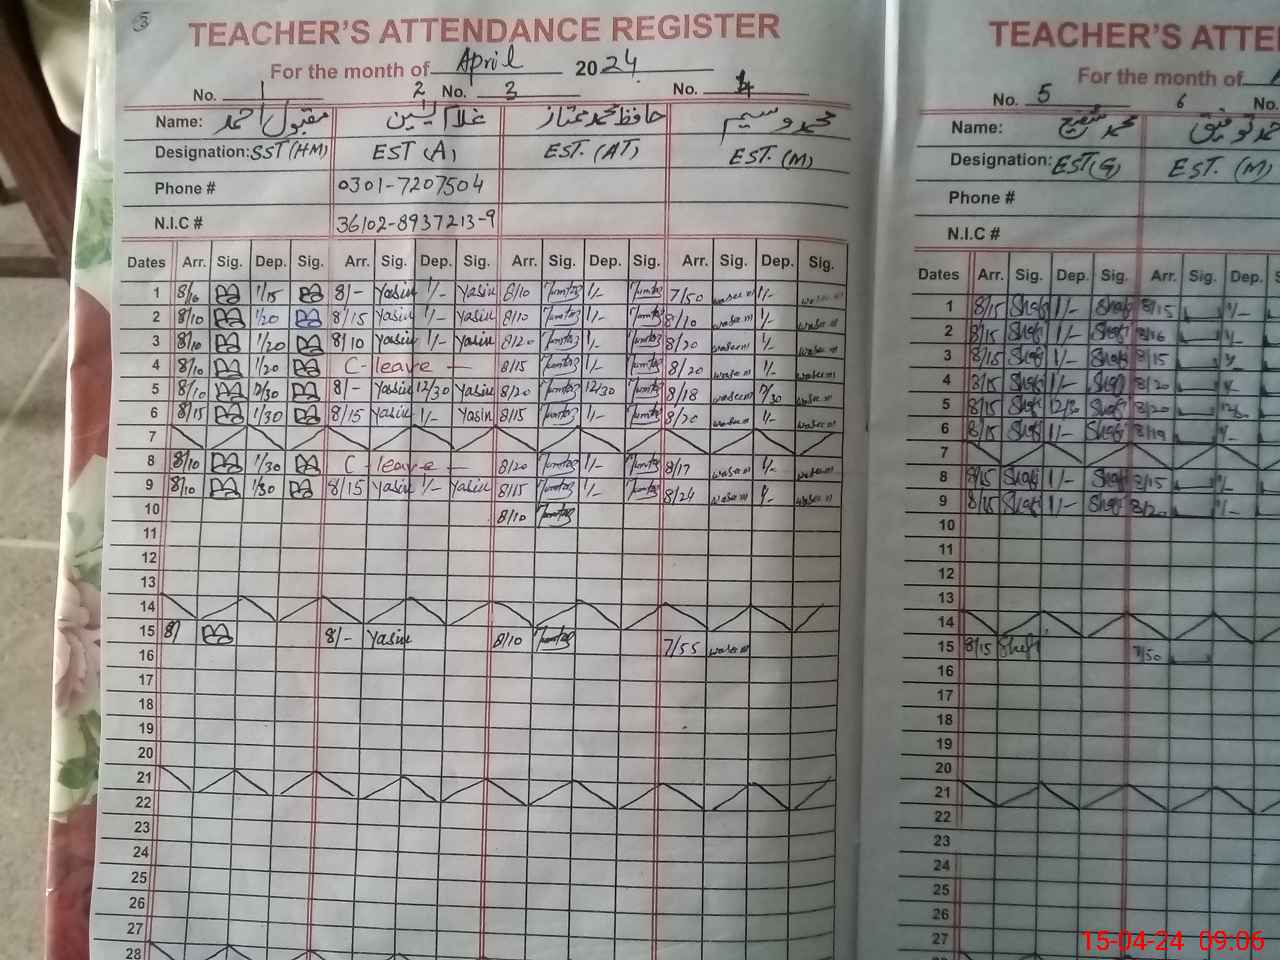 5
TEACHER'S ATTENDANCE REGISTER
For the month of April 2024
No. 1 2 No. 3 No. 4
Name: مقبول احمد غلام یٰسین حافظ محمد ممتاز محمد وسیم
Designation: SST (HM) EST (A) EST. (AT) EST. (M)
Phone # 0301-7207504
N.I.C # 36102-8937213-9
Dates Arr. Sig. Dep. Sig. Arr. Sig. Dep. Sig. Arr. Sig. Dep. Sig. Arr. Sig. Dep. Sig.
1 8/10 1/15 8/- Yasin 1/- Yasin 8/10 Mumtaz 1/- Mumtaz 7/50 waseem 1/- waseem
2 8/10 1/20 8/15 Yasin 1/- Yasin 8/10 Mumtaz 1/- Mumtaz 8/10 waseem 1/- waseem
3 8/10 1/20 8/10 Yasin 1/- Yasin 8/20 Mumtaz 1/- Mumtaz 8/20 waseem 1/- waseem
4 8/10 1/20 C-leave — 8/15 Mumtaz 1/- Mumtaz 8/20 waseem 1/- waseem
5 8/10 12/30 8/- Yasin 12/30 Yasin 8/20 Mumtaz 12/30 Mumtaz 8/18 waseem 12/30 waseem
6 8/15 1/30 8/15 Yasin 1/- Yasin 8/15 Mumtaz 1/- Mumtaz 8/20 waseem 1/- waseem
7
8 8/10 1/30 C-leave — 8/20 Mumtaz 1/- Mumtaz 8/17 waseem 1/- waseem
9 8/10 1/30 8/15 Yasin 1/- Yasin 8/15 Mumtaz 1/- Mumtaz 8/24 waseem 1/- waseem
10 8/10 Mumtaz
11
12
13
14
15 8/ 8/- Yasin 8/10 Mumtaz 7/55 waseem
16
17
18
19
20
21
22
23
24
25
26
27
28
TEACHER'S ATTE
For the month of
No. 5 6 No.
Name: محمد شفیع
Designation: EST (G) EST. (M)
Phone #
N.I.C #
Dates Arr. Sig. Dep. Sig. Arr. Sig. Dep. S
1 8/15 Shafi 1/- Shafi 8/15 1/-
2 8/15 Shafi 1/- Shafi 8/16 1/-
3 8/15 Shafi 1/- Shafi 8/15 1/-
4 8/15 Shafi 1/- Shafi 8/20 1/-
5 8/15 Shafi 12/30 Shafi 8/20
6 8/15 Shafi 1/- Shafi 8/19 1/-
7
8 8/15 Shafi 1/- Shafi 8/15 1/-
9 8/15 Shafi 1/- Shafi 8/20 1/-
10
11
12
13
14
15 8/15 Shafi 7/50
16
17
18
19
20
21
22
23
24
25
26
27
15-04-24 09:06